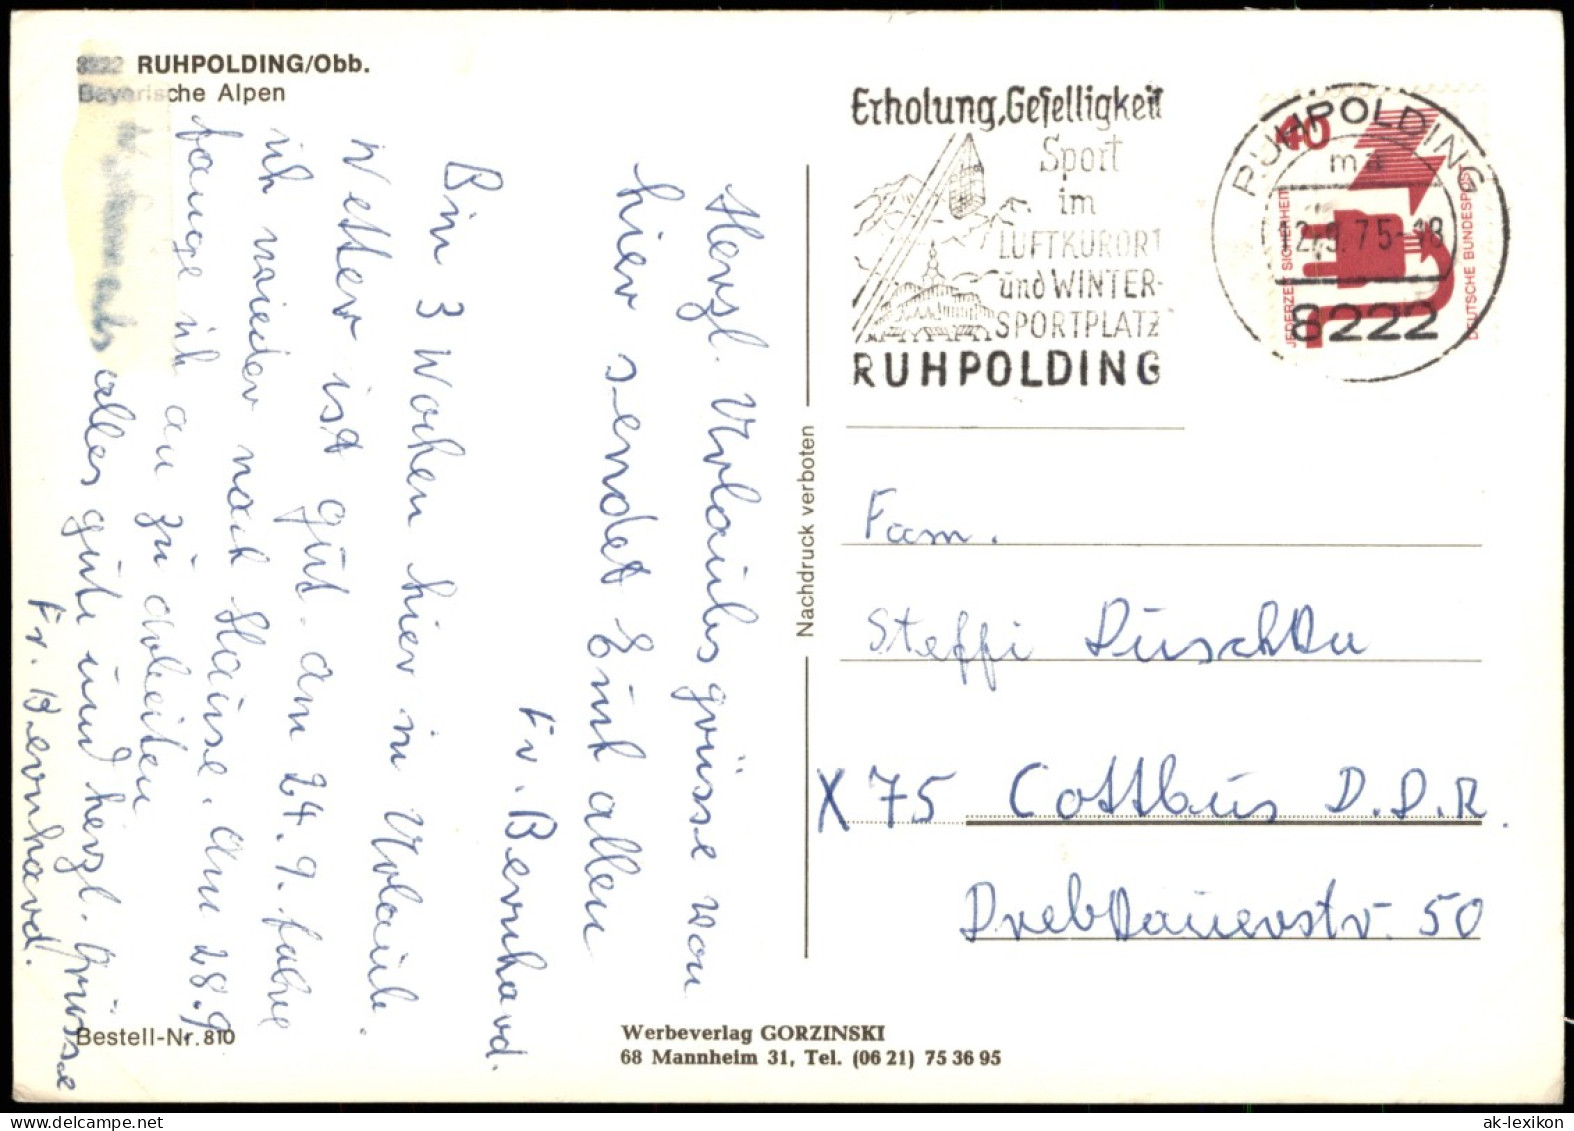 8222 RUHPOLDING/Obb.
Bayerische Alpen
Herzl. Urlaubsgrüsse von
hier sendet Euch allen
Fr. Bernhard.
Bin 3 Wochen hier in Urlaub.
Wetter ist gut. am 24.9. fahre
ich wieder nach Hause. am 28.9
fange ich an zu arbeiten
alles gute und herzl. Grüsse
Fr. Bernhard.
Bestell-Nr. 810
Werbeverlag GORZINSKI
68 Mannheim 31, Tel. (06 21) 75 36 95
Nachdruck verboten
Erholung, Geselligkeit
Sport
im
LUFTKURORT
und WINTER-
SPORTPLATZ
RUHPOLDING
RUHPOLDING
ma
12.-9.75-18
8222
40
JEDERZEIT SICHERHEIT
DEUTSCHE BUNDESPOST
Fam.
Steffi Duschka
X 75 Cottbus D.D.R.
Drebkauerstr. 50
ak-lexikon